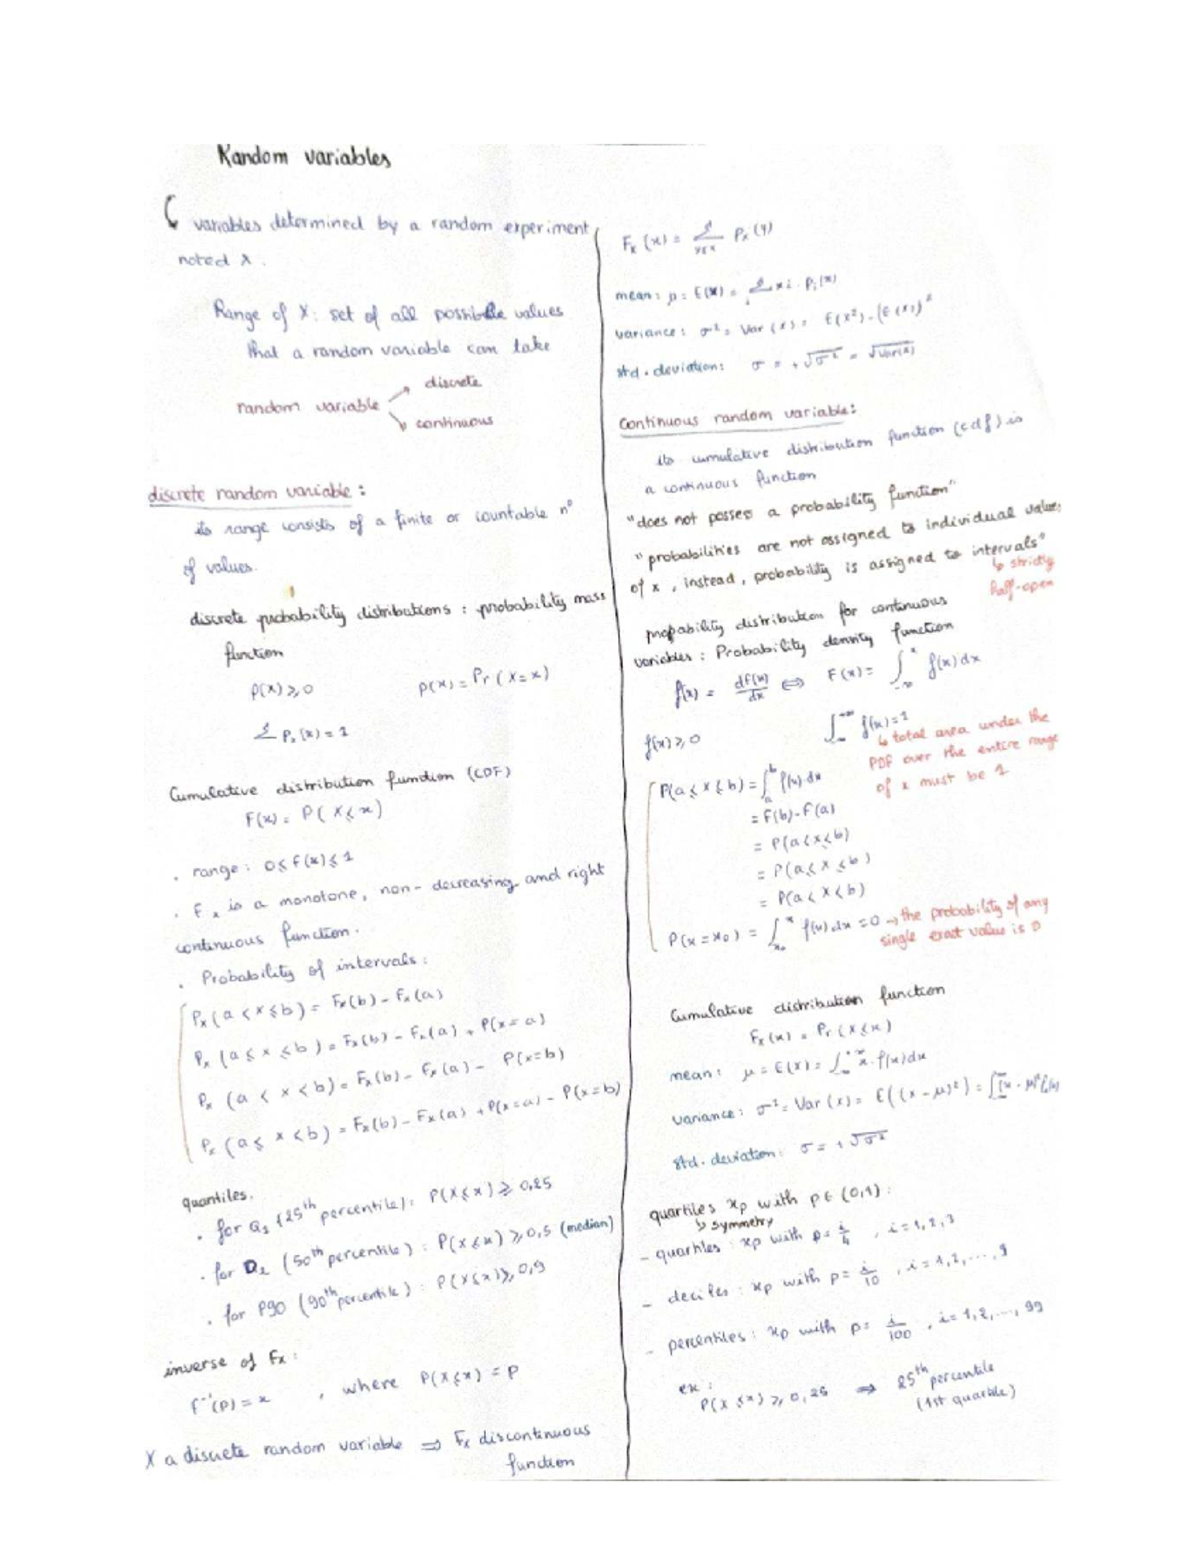 Random variables
variables determined by a random experiment
noted X.
Range of X: set of all possible values
that a random variable can take
discrete
random variable
continuous
discrete random variable:
its range consists of a finite or countable n°
of values.
discrete probability distributions: probability mass
function
p(x) ≥ 0   p(x) = Pr(X=x)
Σ Pₓ(x) = 1
Cumulative distribution function (CDF)
F(x) = P(X≤x)
. range: 0≤F(x)≤1
. Fₓ is a monotone, non-decreasing and right
continuous function.
. Probability of intervals:
Pₓ(a < x ≤ b) = Fₓ(b) - Fₓ(a)
Pₓ(a ≤ x ≤ b) = Fₓ(b) - Fₓ(a) + P(x=a)
Pₓ(a < x < b) = Fₓ(b) - Fₓ(a) - P(x=b)
Pₓ(a ≤ x < b) = Fₓ(b) - Fₓ(a) + P(x=a) - P(x=b)
quantiles.
. for Q₁ (25th percentile): P(X≤x) ≥ 0,25
. for D₂ (50th percentile): P(X≤x) ≥ 0,5 (median)
. for P90 (90th percentile): P(X≤x) ≥ 0,9
inverse of Fₓ:
F⁻¹(p) = x , where P(X≤x) = P
X a discrete random variable ⇒ Fₓ discontinuous
function
Fₓ(x) = Σ Pₓ(y)
y≤x
mean: μ = E(X) = Σ xi · Pi(x)
i
variance: σ² = Var(x) = E(x²) - (E(x))²
std. deviation: σ = +√σ² = √Var(x)
Continuous random variable:
its cumulative distribution function (cdf) is
a continuous function
"does not posses a probability function"
"probabilities are not assigned to individual values
of x, instead, probability is assigned to intervals"
↳ strictly
half-open
propability distribution for continuous
variables: Probability density function
f(x) = dF(x)/dx ⇔ F(x) = ∫₋∞ˣ f(x)dx
f(x) ≥ 0   ∫₋∞⁺∞ f(x) = 1
↳ total area under the
PDF over the entire range
of x must be 1
P(a ≤ X ≤ b) = ∫ₐᵇ f(x)dx
= F(b) - F(a)
= P(a<x≤b)
= P(a≤X≤b)
= P(a<X<b)
P(x=x₀) = ∫ f(x)dx = 0 → the probability of any
single exact value is 0
Cumulative distribution function
Fₓ(x) = Pr(X≤x)
mean: μ = E(X) = ∫₋∞⁺∞ x·f(x)dx
variance: σ² = Var(x) = E((x-μ)²) =
std. deviation: σ = +√σ²
quartiles xp with p∈(0,1):
↳ symmetry
- quartiles: xp with p = i/4 , i = 1,2,3
- deciles: xp with p = i/10 , i = 1,2,...,9
- percentiles: xp with p = i/100 , i = 1,2,...,99
ex:
P(X≤x) ≥ 0,25 ⇒ 25th percentile
(1st quartile)